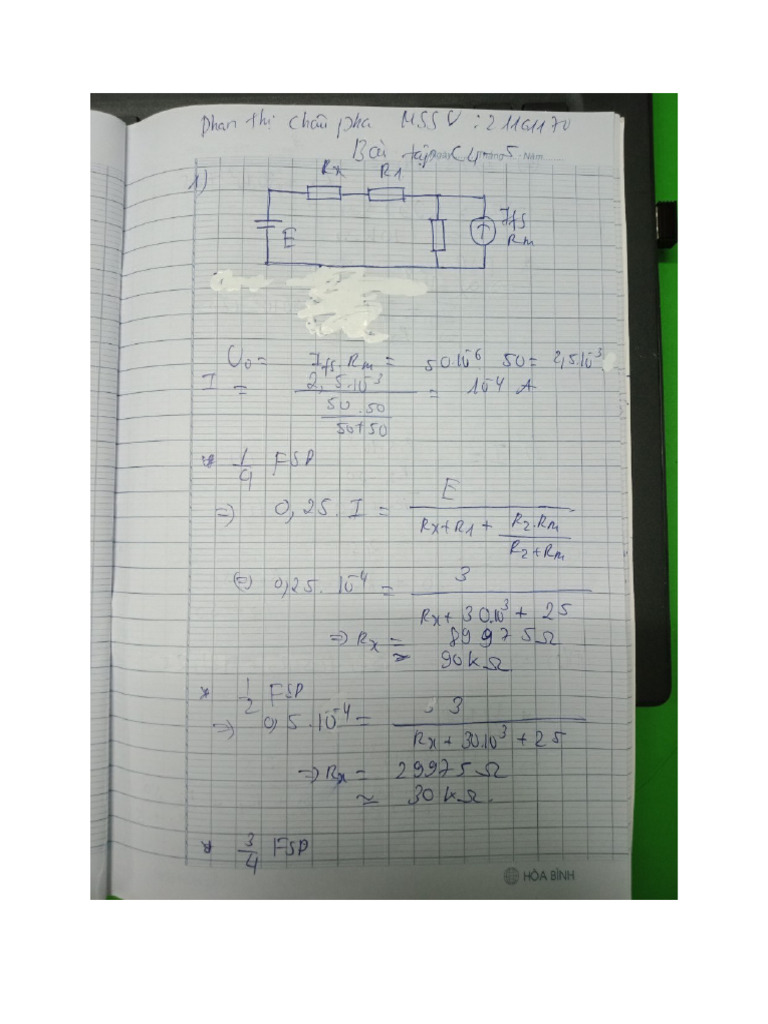 Phan Thị Châu Pha MSSV: 21161170
Bài tập C4
1)
Rx R1
E
Ifs
Rm
U₀ = Ifs.Rm = 50.10⁻⁶ 50 = 2,5.10⁻³
I = 2,5.10⁻³ / (50.50 / 50+50) = 10⁻⁴ A
* 1/4 FSD
=> 0,25. I = E / (Rx+R1 + R2.Rm / R2+Rm)
(=) 0,25. 10⁻⁴ = 3 / (Rx + 30.10³ + 25)
=> Rx = 89975Ω
≈ 90kΩ
* 1/2 FSD
=> 0,5.10⁻⁴ = 3 / (Rx + 30.10³ + 25)
=> Rx = 29975Ω
≈ 30kΩ.
* 3/4 FSD
HÒA BÌNH